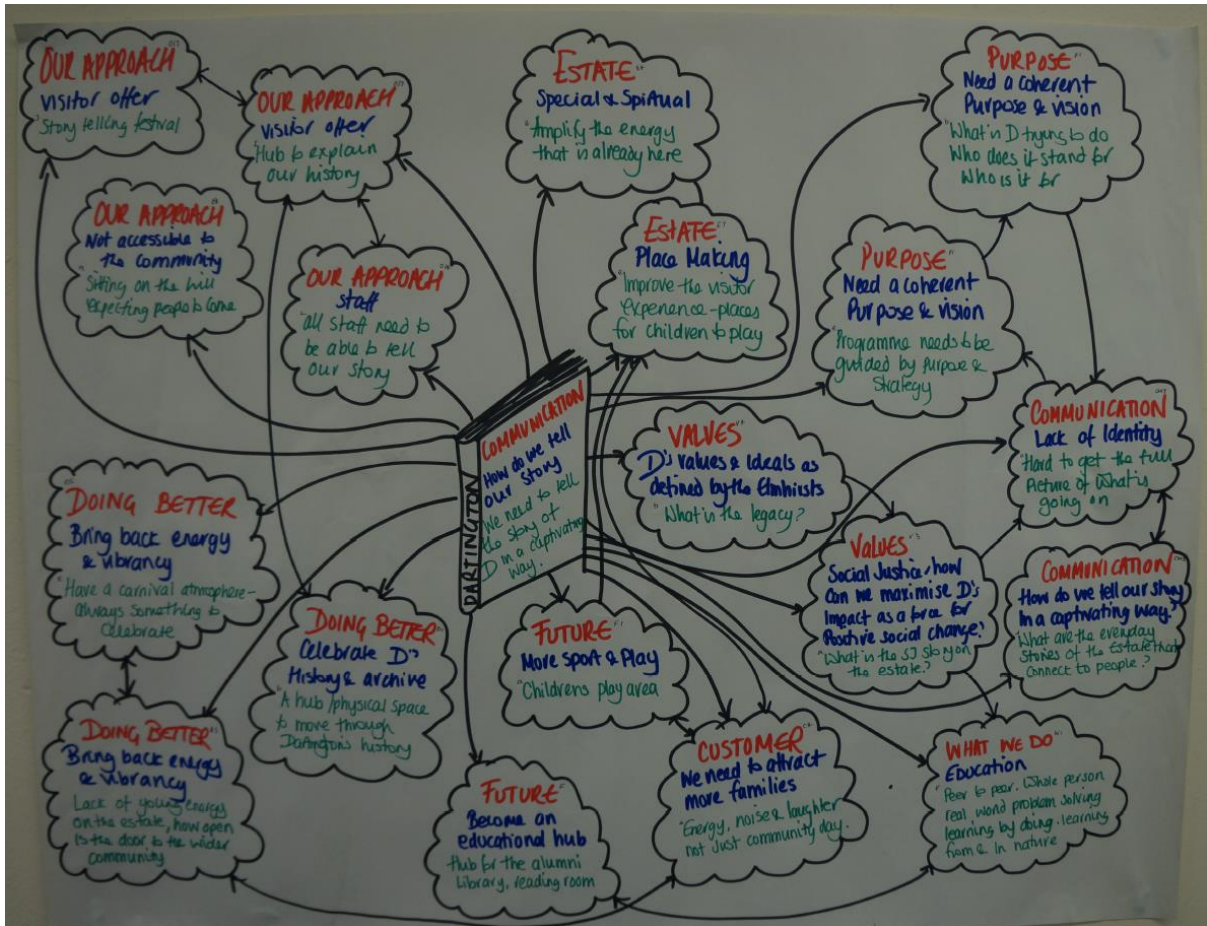 OUR APPROACH
Visitor offer
"Story telling festival
OUR APPROACH
Visitor offer
"Hub to explain
our history
OUR APPROACH
Not accessible to
the community
"Sitting on the hill
expecting people to come
OUR APPROACH
Staff
"all staff need to
be able to tell
our story
ESTATE
Special & Spiritual
"Amplify the energy
that is already here
ESTATE
Place Making
"Improve the visitor
experience-places
for children to play
PURPOSE
Need a coherent
Purpose & vision
"What is D trying to do
Who does it stand for
Who is it for
PURPOSE
Need a coherent
Purpose & vision
"Programme needs to be
guided by purpose &
strategy
DARTINGTON
COMMUNICATION
How do we tell
our story
We need to tell
the story of
D in a captivating
way.
VALUES
D's values & ideals as
defined by the Elmhirsts
"What is the legacy?
COMMUNICATION
Lack of Identity
"Hard to get the full
Picture of what is
going on
VALUES
Social Justice, how
can we maximise D's
Impact as a force for
Positive social change?
"What is the SJ story on
the estate?
COMMUNICATION
How do we tell our story
In a captivating way?
What are the everyday
stories of the Estate that
connect to people?
DOING BETTER
Bring back energy
& vibrancy
"Have a carnival atmosphere-
always something to
celebrate
DOING BETTER
Celebrate D's
History & archive
"A hub/physical space
to move through
Dartington's history
DOING BETTER
Bring back energy
& vibrancy
Lack of young energy
on the estate, how open
Is the door to the wider
community
FUTURE
More sport & Play
"Childrens play area
FUTURE
Become an
educational hub
Hub for the alumni
Library, reading room
CUSTOMER
We need to attract
more families
"Energy, noise & laughter
not just community day.
WHAT WE DO
Education
"Peer to peer. Whole person
real world problem solving
learning by doing. learning
from & in nature